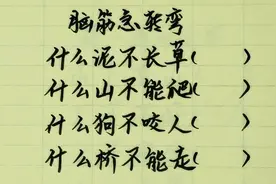 脑筋急转弯
什么泥不长草(    )
什么山不能爬(    )
什么狗不咬人(    )
什么桥不能走(    )